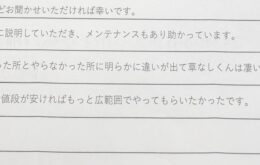 どお聞かせいただければ幸いです。
に説明していただき、メンテナンスもあり助かっています。
った所とやらなかった所に明らかに違いが出て草なしくんは凄い
値段が安ければもっと広範囲でやってもらいたかったです。